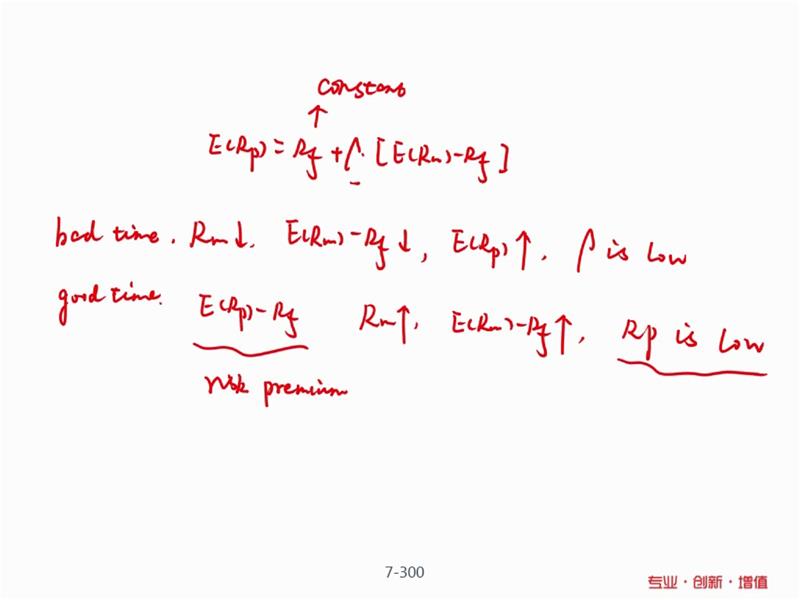 constans
E(Rp) = Rf + β · [E(Rm) - Rf]
bad time. Rm↓. E(Rm) - Rf↓, E(Rp)↑. β is low
good time. E(Rp) - Rf Rm↑. E(Rm) - Rf↑. Rp is low
risk premium
7-300
专业·创新·增值